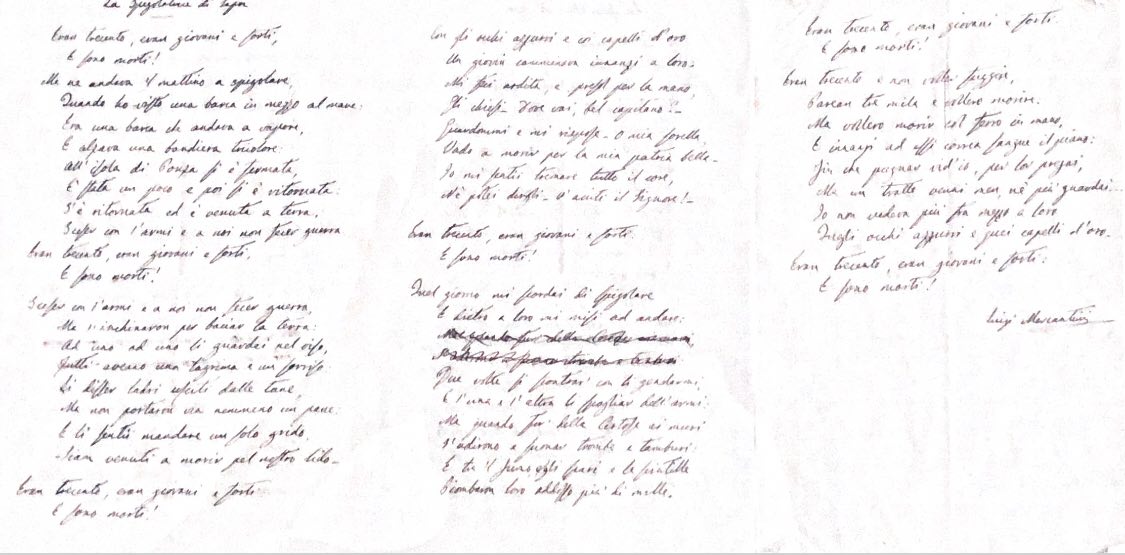 La Spigolatrice di Sapri
Eran trecento, eran giovani e forti,
E sono morti!
Me ne andava il mattino a spigolare,
Quando ho visto una barca in mezzo al mare:
Era una barca che andava a vapore,
E alzava una bandiera tricolore:
All'isola di Ponza si è fermata,
È stata un poco e poi si è ritornata:
S'è ritornata ed è venuta a terra;
Sceser con l'armi e a noi non fecer guerra
Eran trecento, eran giovani e forti.
E sono morti!
Sceser con l'armi e a noi non fecer guerra,
Ma s'inchinaron per baciar la terra:
Ad uno ad uno li guardai nel viso,
Tutti aveano una lagrima e un sorriso
Li disser ladri usciti dalle tane,
Ma non portaron via nemmeno un pane:
E li sentii mandare un solo grido.
- Siam venuti a morir pel nostro lido -
Eran trecento, eran giovani e forti
E sono morti!
Con gli occhi azzurri e coi capelli d'oro
Un giovin camminava innanzi a loro.
Mi feci ardita, e presol per la mano,
Gli chiesi - Dove vai, bel capitano? -
Guardommi e mi rispose - O mia sorella
Vado a morir per la mia patria bella -
Io mi sentii tremare tutto il core,
Nè potei dirgli - V'aiuti il Signore! -
Eran trecento, eran giovani e forti.
E sono morti!
Quel giorno mi scordai di spigolare
E dietro a loro mi misi ad andare:
Due volte si scontrar con li gendarmi,
E l'una e l'altra li spogliar dell'armi:
Ma quando fur della Certosa ai muri
S'udirono a suonar trombe e tamburi:
E tra il fumo e gli spari e le scintille
Piombaron loro addosso più di mille.
Eran trecento, eran giovani e forti.
E sono morti!
Eran trecento e non voller fuggire,
Parean tre mila e vollero morire:
Ma vollero morir col ferro in mano,
E innanzi ad essi correa sangue il piano:
Fin che pugnar vid'io, per lor pregai,
Ma un tratto venni men, nè più guardai...
Io non vedeva più fra mezzo a loro
Quegli occhi azzurri e quei capelli d'oro.
Eran trecento, eran giovani e forti:
E sono morti!
Luigi Mercantini